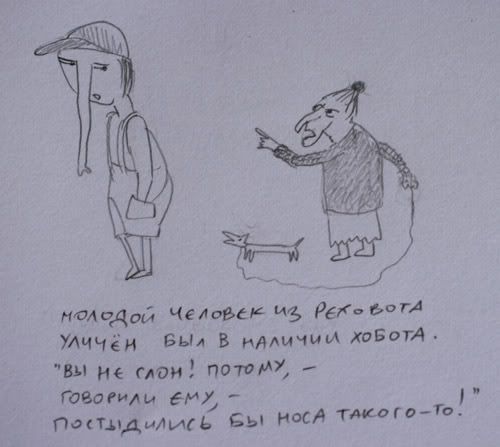 молодой человек из Реховота
уличён был в наличии хобота.
"Вы не слон! Потому, –
говорили ему, –
постыдились бы носа такого-то!"